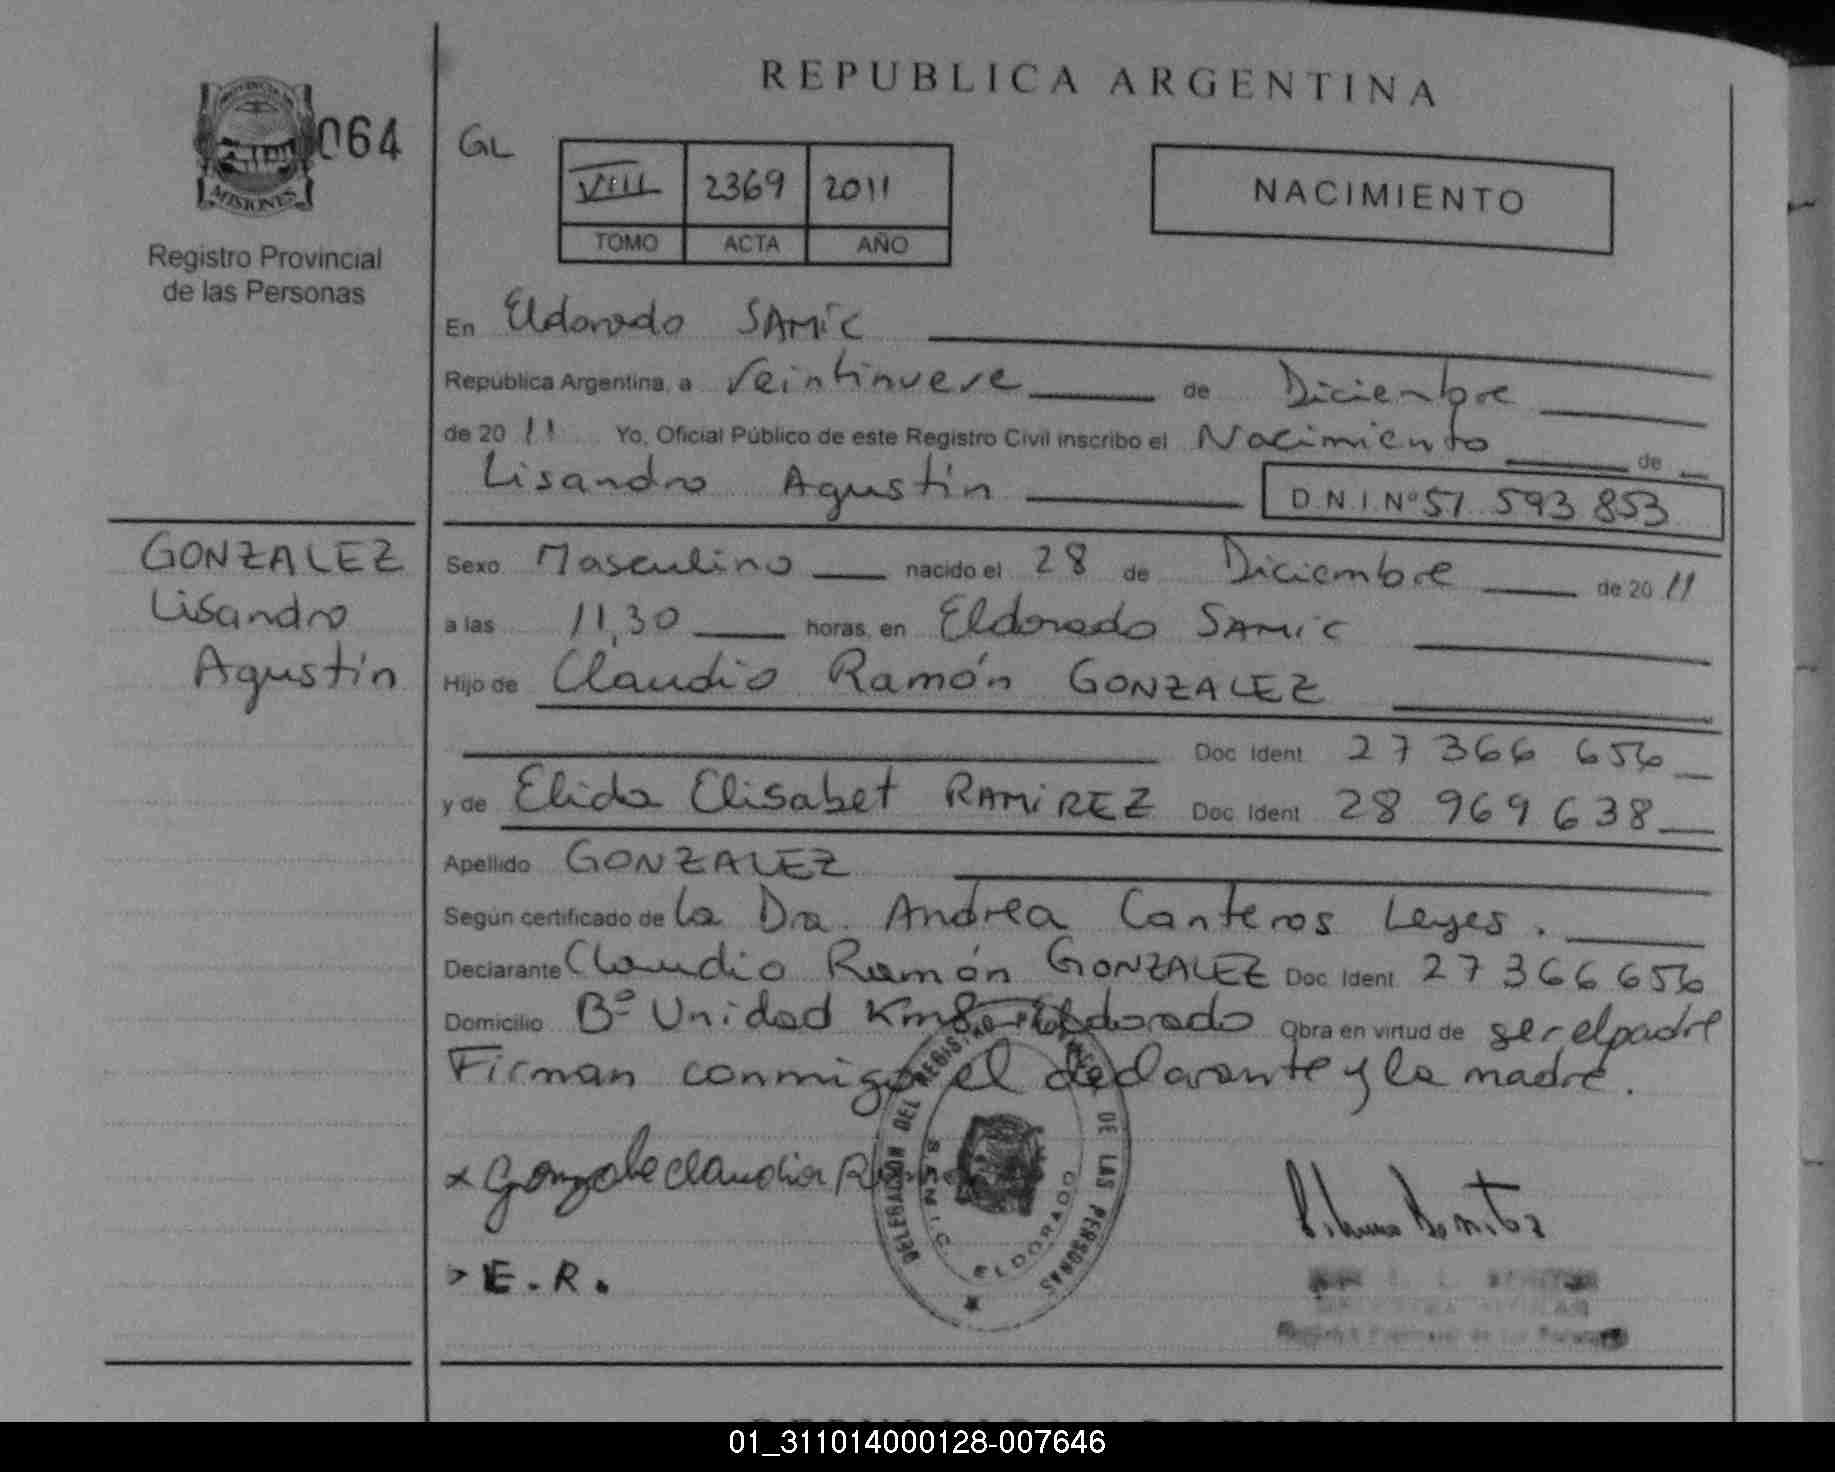 REPUBLICA ARGENTINA
PROVINCIA DE
MISIONES
064
GL
VIII 2369 2011
TOMO ACTA AÑO
NACIMIENTO
Registro Provincial
de las Personas
En Eldorado SAMIC
República Argentina, a Veintinueve de Diciembre
de 2011 Yo, Oficial Público de este Registro Civil inscribo el Nacimiento de
Lisandro Agustín D.N.I.Nº 57.593.853
GONZALEZ
Lisandro
Agustín
Sexo Masculino nacido el 28 de Diciembre de 2011
a las 11,30 horas, en Eldorado SAMIC
Hijo de Claudio Ramón GONZALEZ
Doc Ident 27 366 656
y de Elida Elisabet RAMIREZ Doc Ident 28 969 638
Apellido GONZALEZ
Según certificado de la Dra. Andrea Canteros Leyes.
Declarante Claudio Ramón GONZALEZ Doc Ident 27 366 656
Domicilio Bº Unidad Km8 Eldorado Obra en virtud de ser el padre
Firman conmigo el declarante y la madre.
x Gonzale Claudio
E.R.
DELEGACION DEL REGISTRO DE LAS PERSONAS
ELDORADO
01_311014000128-007646